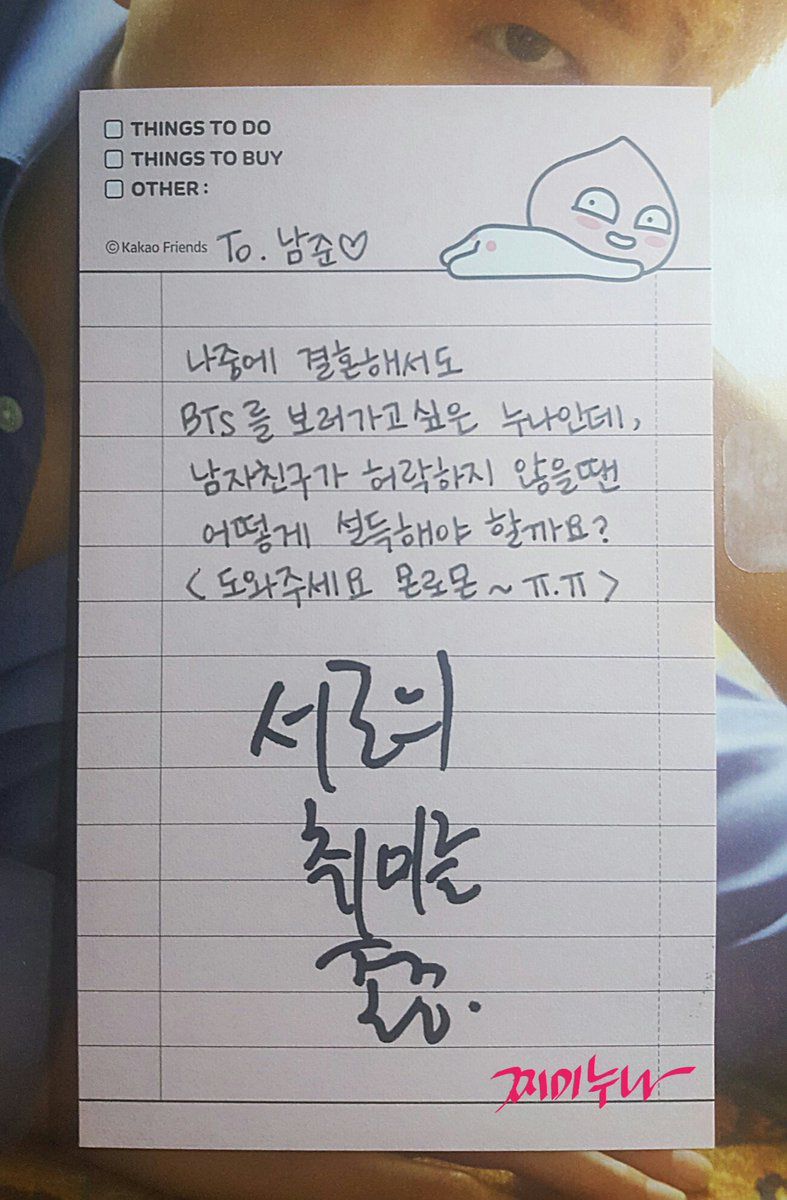 THINGS TO DO
THINGS TO BUY
OTHER :
©Kakao Friends To. 남준♡
나중에 결혼해서도
BTS를 보러가고싶은 누나인데,
남자친구가 허락하지 않을땐
어떻게 설득해야 할까요?
< 도와주세요 몬로몬~ ㅠ.ㅠ >
서로의
취미는
존중.
찌미누나